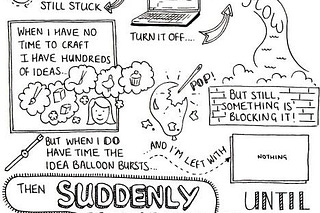 STILL STUCK
TURN IT OFF....
FLOW
WHEN I HAVE NO
TIME TO CRAFT
I HAVE HUNDREDS
OF IDEAS...
POP!
BUT STILL,
SOMETHING IS
BLOCKING IT!
BUT WHEN I DO
HAVE TIME THE
IDEA BALLOON BURSTS...
AND I'M LEFT WITH
NOTHING
THEN SUDDENLY
UNTIL